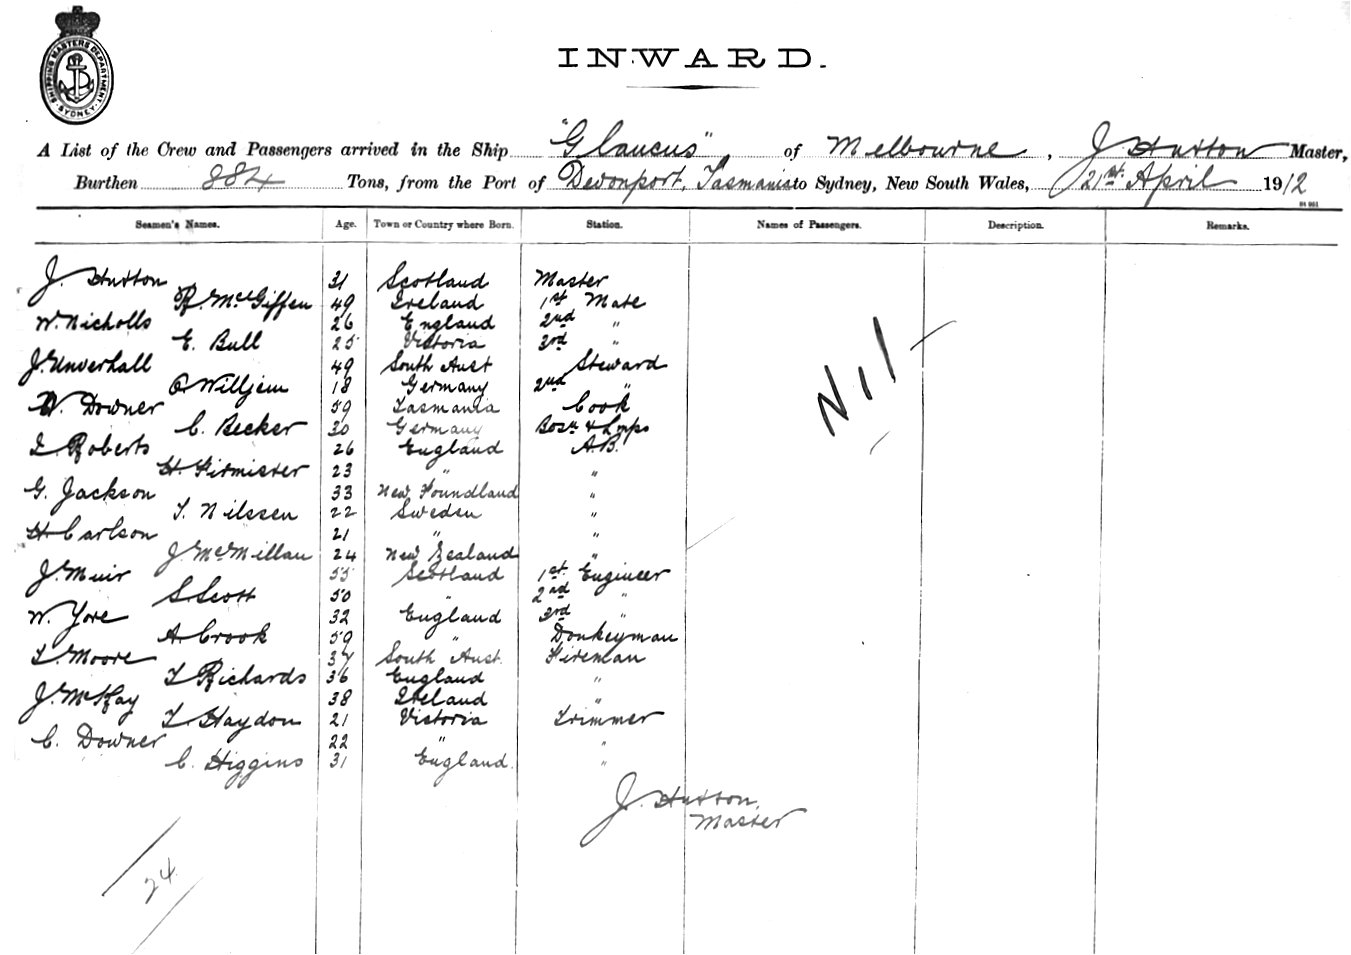 SHIPPING MASTERS DEPARTMENT
SYDNEY
INWARD.
A List of the Crew and Passengers arrived in the Ship "Glaucus" of Melbourne, J. Hutton Master,
Burthen 884 Tons, from the Port of Devonport, Tasmania to Sydney, New South Wales, 21st. April 1912
Seamen's Names. Age. Town or Country where Born. Station. Names of Passengers. Description. Remarks.
J. Hutton 31 Scotland Master
R. McGiffen 49 Ireland 1st Mate
W. Nicholls 26 England 2nd "
E. Bull 25 Victoria 3rd "
J. Unverhall 49 South Aust Steward
O Willjem 18 Germany 2nd "
W. Downer 59 Tasmania Cook
C. Becker 30 Germany Bosn & Lmps
Roberts 26 England A.B.
H. Firmister 23 " "
G. Jackson 33 New Foundland "
T. Nilssen 22 Sweden "
H Carlson 21 " "
J. McMillan 24 New Zealand "
J. Muir 55 Scotland 1st. Engineer
S. Scott 50 " 2nd "
W. Yore 32 England 3rd "
A. Crook 59 " Donkeyman
T. Moore 37 South Aust. Fireman
T Richards 36 England "
J. McKay 38 Ireland "
T. Haydon 21 Victoria Trimmer
C. Downer 22 " "
C. Higgins 31 England. "
Nil
J. Hutton.
Master
24